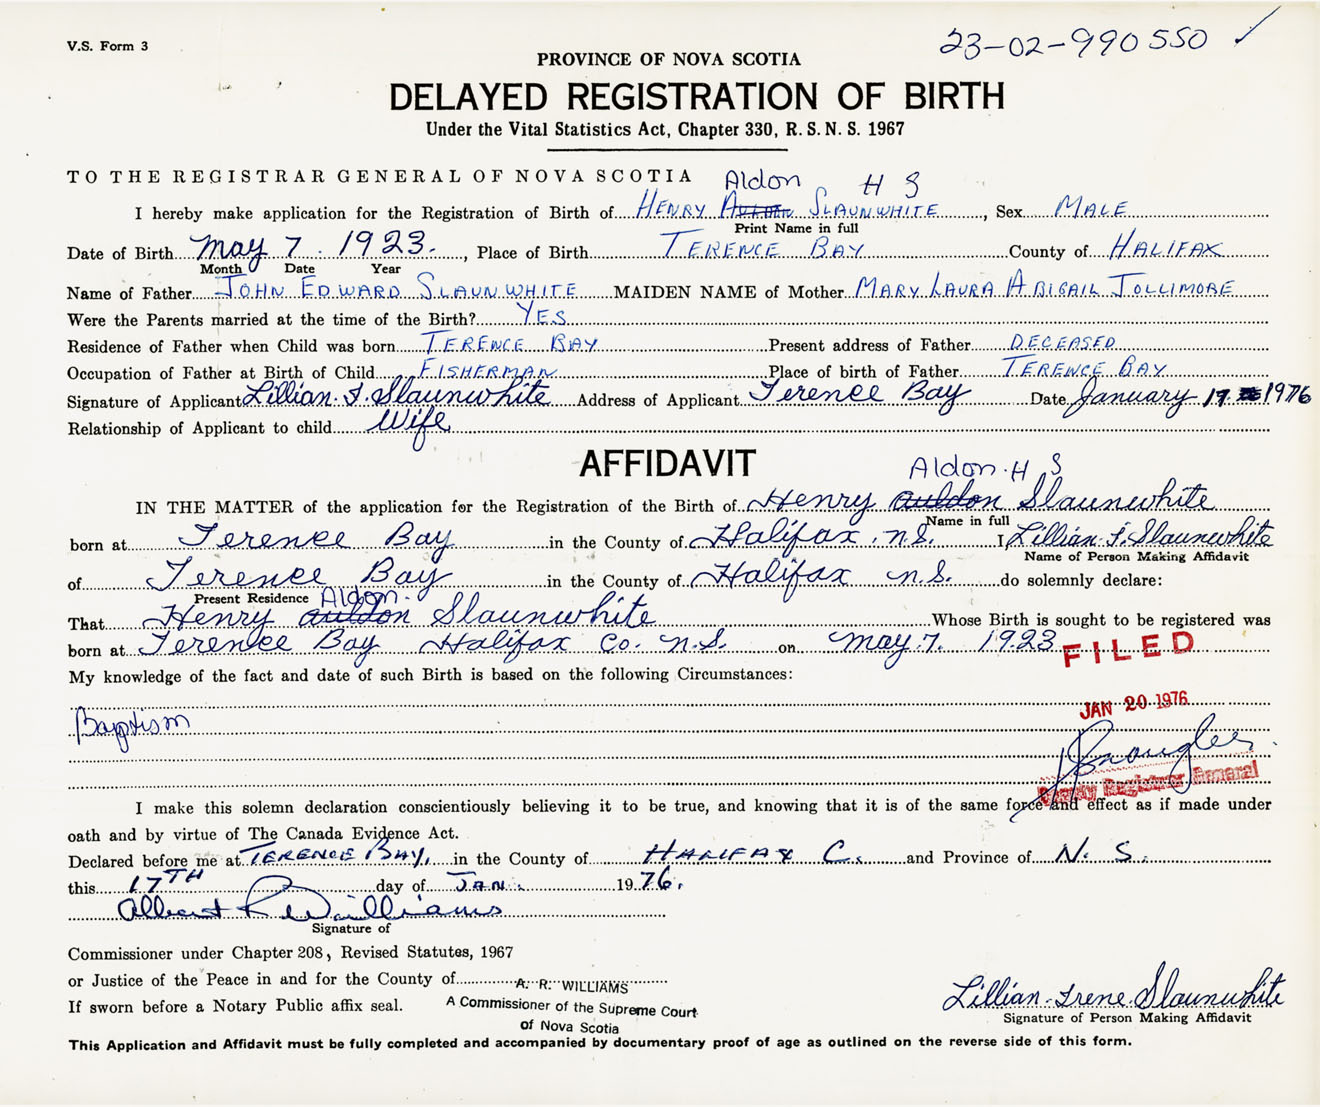 V.S. Form 3
23-02-990550 ✓
PROVINCE OF NOVA SCOTIA
DELAYED REGISTRATION OF BIRTH
Under the Vital Statistics Act, Chapter 330, R. S. N. S. 1967
TO THE REGISTRAR GENERAL OF NOVA SCOTIA
Aldon H S
I hereby make application for the Registration of Birth of HENRY SLAUNWHITE, Sex MALE
Print Name in full
Date of Birth May 7. 1923., Place of Birth TERENCE BAY County of HALIFAX
Month Date Year
Name of Father JOHN EDWARD SLAUNWHITE MAIDEN NAME of Mother MARY LAURA ABIGAIL JOLLIMORE
Were the Parents married at the time of the Birth? YES
Residence of Father when Child was born TERENCE BAY Present address of Father DECEASED
Occupation of Father at Birth of Child FISHERMAN Place of birth of Father TERENCE BAY
Signature of Applicant Lillian I. Slaunwhite Address of Applicant Terence Bay Date January 17 1976
Relationship of Applicant to child Wife
AFFIDAVIT
Aldon. H S
IN THE MATTER of the application for the Registration of the Birth of Henry auldon Slaunwhite
Name in full
born at Terence Bay in the County of Halifax. n.S. I, Lillian. I. Slaunwhite
Name of Person Making Affidavit
of Terence Bay in the County of Halifax n.S. do solemnly declare:
Present Residence Aldon.
That Henry auldon Slaunwhite Whose Birth is sought to be registered was
born at Terence Bay Halifax Co. n.S. on May. 7. 1923
FILED
My knowledge of the fact and date of such Birth is based on the following Circumstances:
JAN 20 1976
Baptism
Deputy Registrar General
I make this solemn declaration conscientiously believing it to be true, and knowing that it is of the same force and effect as if made under
oath and by virtue of The Canada Evidence Act.
Declared before me at TERENCE BAY, in the County of HALIFAX C. and Province of N. S.
this 17TH day of JAN. 1976.
Albert R Williams
Signature of
Commissioner under Chapter 208, Revised Statutes, 1967
or Justice of the Peace in and for the County of A. R. WILLIAMS
If sworn before a Notary Public affix seal. A Commissioner of the Supreme Court
of Nova Scotia
Lillian Irene Slaunwhite
Signature of Person Making Affidavit
This Application and Affidavit must be fully completed and accompanied by documentary proof of age as outlined on the reverse side of this form.